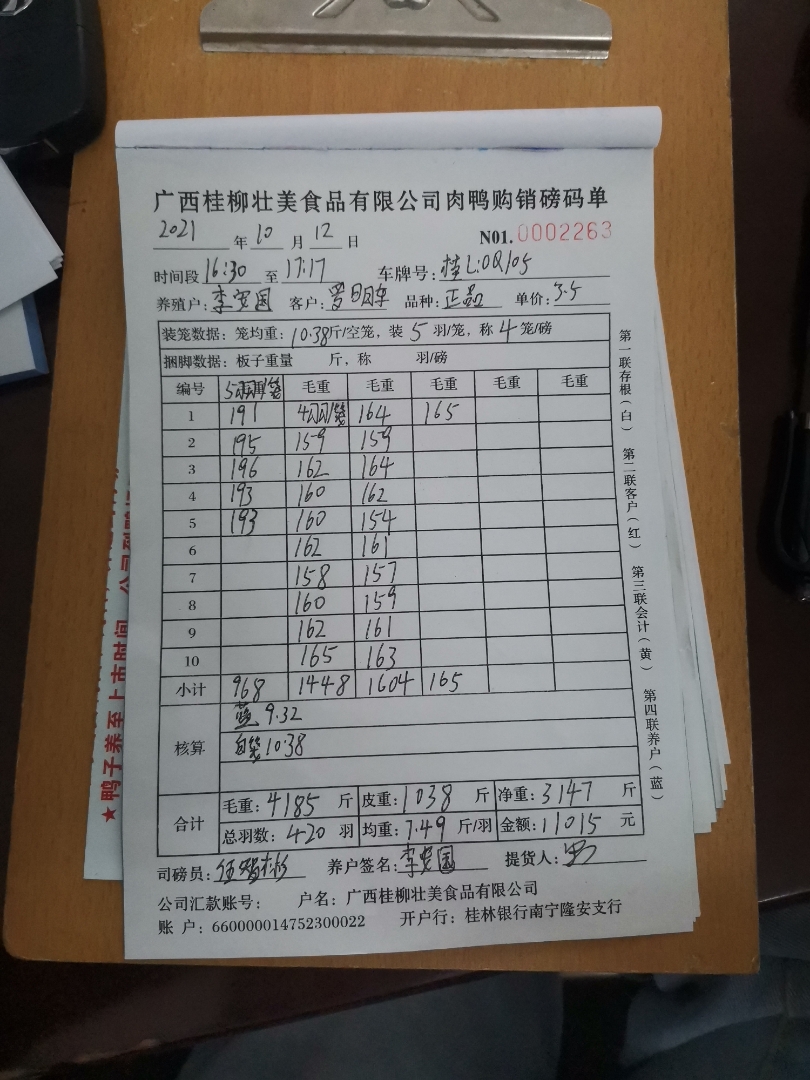 广西桂柳壮美食品有限公司肉鸭购销磅码单
2021 年 10 月 12 日 N01.0002263
时间段 16:30 至 17:17 车牌号: 桂L:0Q105
养殖户: 李安国 客户: 品种: 单价: 3.5
装笼数据: 笼均重: 10.38斤/空笼, 装 5 羽/笼, 称 4 笼/磅
捆脚数据: 板子重量 斤, 称 羽/磅
编号 毛重 毛重 毛重 毛重 毛重
1 191 164 165
2 195 159 159
3 196 162 164
4 193 160 162
5 193 160 154
6 162 161
7 158 157
8 160 159
9 162 161
10 165 163
小计 968 1448 1604 165
核算
蓝 9.32
10.38
合计
毛重: 4185 斤 皮重: 1038 斤 净重: 3147 斤
总羽数: 420 羽 均重: 7.49 斤/羽 金额: 11015 元
司磅员: 养户签名: 李安国 提货人:
公司汇款账号: 户名: 广西桂柳壮美食品有限公司
账 户: 660000014752300022 开户行: 桂林银行南宁隆安支行
第一联存根(白) 第二联客户(红) 第三联会计(黄) 第四联养户(蓝)
★鸭子养至上市时间